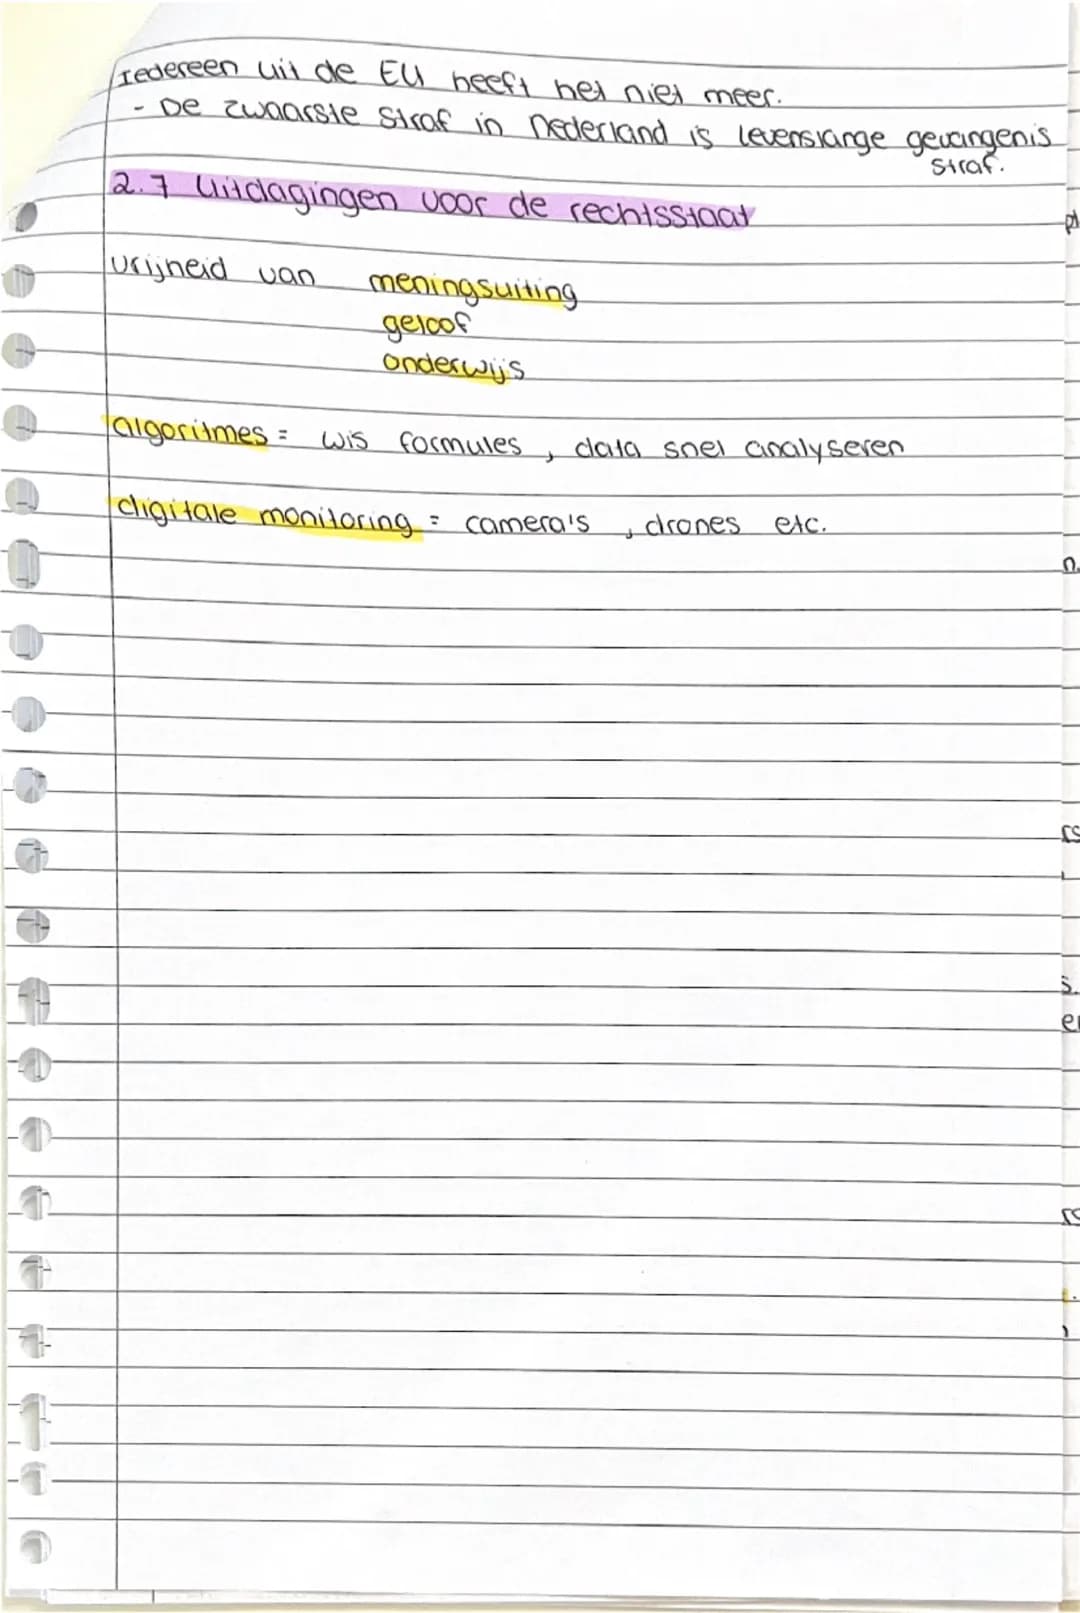 Iedereen uit de EU heeft het niet meer.
- De zwaarste straf in Nederland is levenslange gevangenis
straf.
2.7 Uitdagingen voor de rechtsstaat
vrijheid van meningsuiting
geloof
onderwijs
algoritmes = wis formules, data snel analyseren
digitale monitoring = camera's, drones etc.